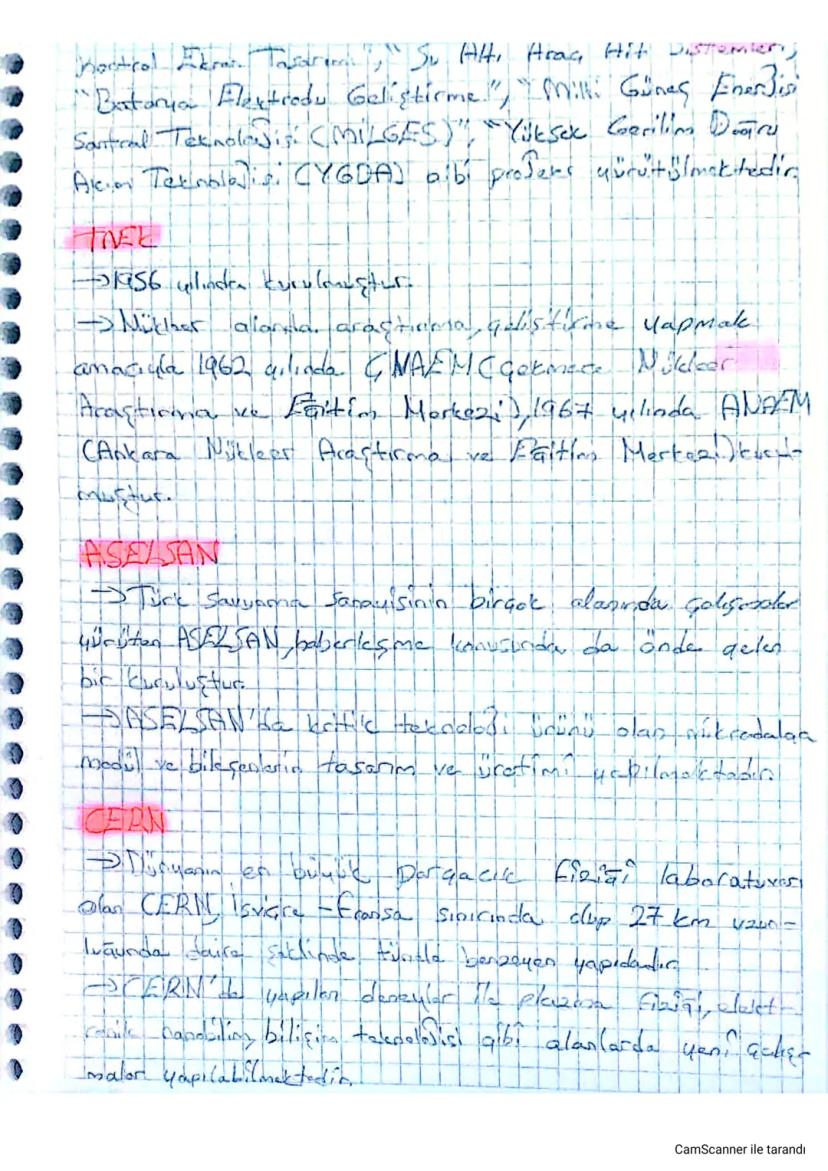 Kontrol Ekranı Tasarımı", "Su Altı Araç Hit Sistemleri",
"Batarya Elektrodu Geliştirme", "Milli Güneş Enerjisi
Santral Teknolojisi (MİLGES)", "Yüksek Gerilim Doğru
Akım Teknolojisi (YGDA) gibi projeler yürütülmektedir.
TAEK
→1956 yılında kurulmuştur.
→Nükleer alanda araştırma, geliştirme yapmak
amacıyla 1962 yılında ÇNAEM (Çekmece Nükleer
Araştırma ve Eğitim Merkezi), 1967 yılında ANAEM
(Ankara Nükleer Araştırma ve Eğitim Merkezi) kurul-
muştur.
ASELSAN
→Türk savunma sanayisinin birçok alanında çalışmalar
yürüten ASELSAN, haberleşme konusunda da önde gelen
bir kuruluştur.
→ASELSAN'da kritik teknoloji ürünü olan mikrodalga
modül ve bileşenlerin tasarım ve üretimi yapılmaktadır.
CERN
→Dünyanın en büyük parçacık fiziği laboratuvarı
olan CERN, İsviçre-Fransa sınırında olup 27 km uzun-
luğunda daire şeklinde tünele benzeyen yapıdadır.
→CERN'de yapılan deneyler ile plazma fiziği, elekt-
ronik, nanobilim, bilişim teknolojisi gibi alanlarda yeni çalış-
malar yapılabilmektedir.
CamScanner ile tarandı